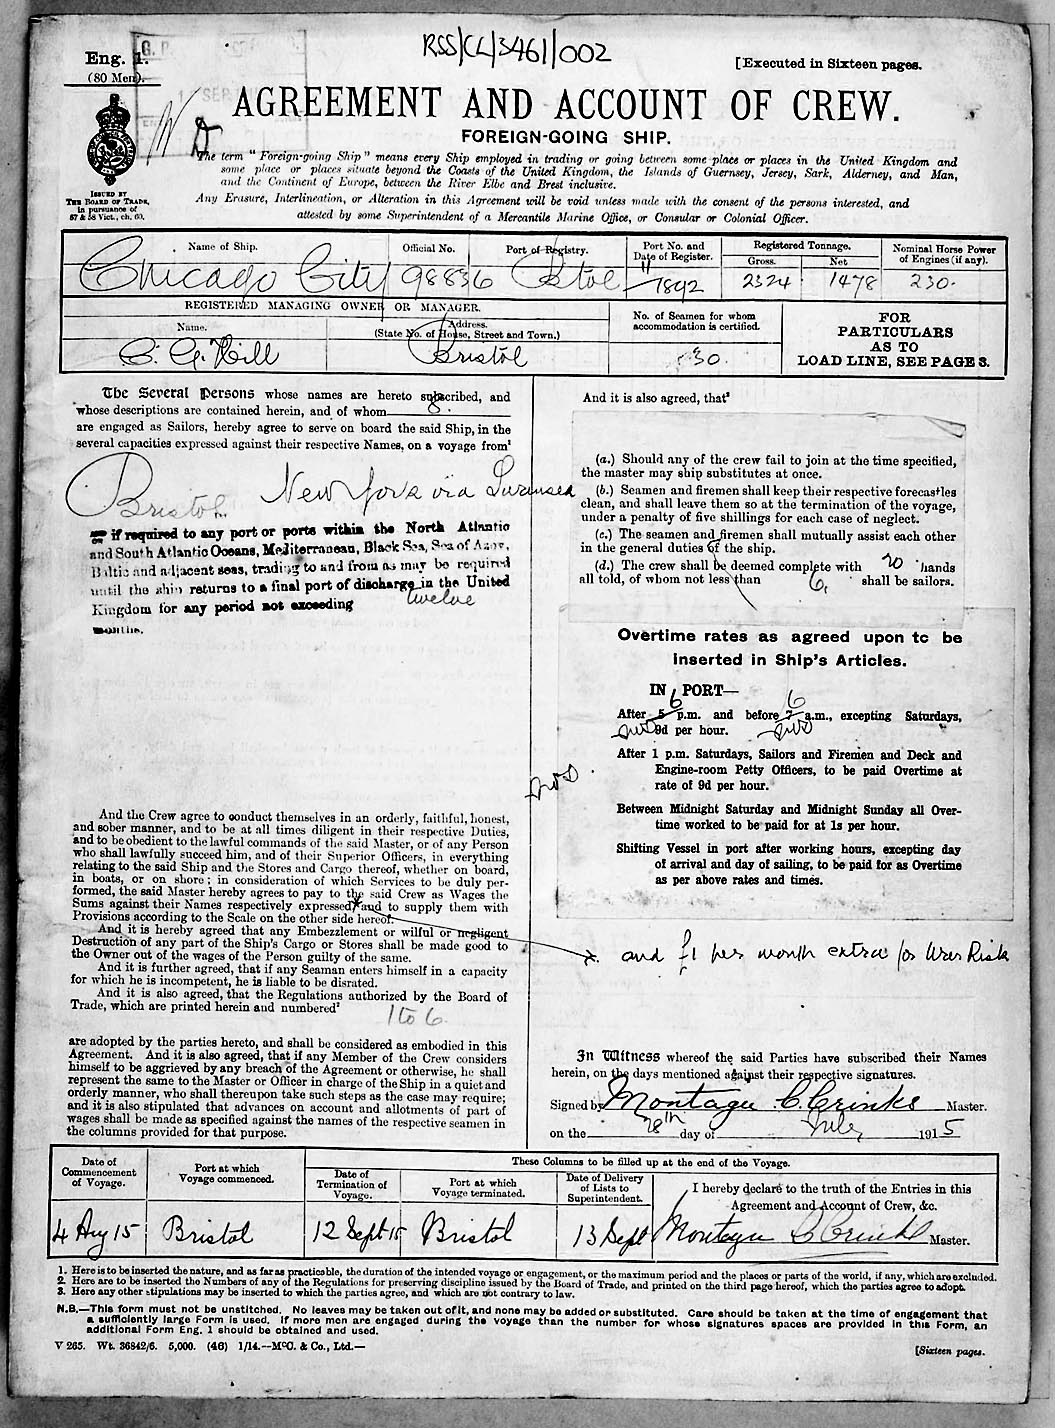 RSS/CL/3461/002
Eng. 1.
(80 Men).
[Executed in Sixteen pages.
AGREEMENT AND ACCOUNT OF CREW.
FOREIGN-GOING SHIP.
The term "Foreign-going Ship" means every Ship employed in trading or going between some place or places in the United Kingdom and
some place or places situate beyond the Coasts of the United Kingdom, the Islands of Guernsey, Jersey, Sark, Alderney, and Man,
and the Continent of Europe, between the River Elbe and Brest inclusive.
Any Erasure, Interlineation, or Alteration in this Agreement will be void unless made with the consent of the persons interested, and
attested by some Superintendent of a Mercantile Marine Office, or Consular or Colonial Officer.
ISSUED BY
THE BOARD OF TRADE,
in pursuance of
57 & 58 Vict., ch. 60.
Name of Ship.
Official No.
Port of Registry.
Port No. and
Date of Register.
Registered Tonnage.
Gross.
Net
Nominal Horse Power
of Engines (if any).
Chicago City
98836
Bristol
11/1892
2324
1478
230.
REGISTERED MANAGING OWNER OR MANAGER.
Name.
Address.
(State No. of House, Street and Town.)
No. of Seamen for whom
accommodation is certified.
FOR
PARTICULARS
AS TO
LOAD LINE, SEE PAGE 3.
C. G. Hill
Bristol
30.
The Several Persons whose names are hereto subscribed, and
whose descriptions are contained herein, and of whom 8.
are engaged as Sailors, hereby agree to serve on board the said Ship, in the
several capacities expressed against their respective Names, on a voyage from¹
Bristol. New York via Swansea
if required to any port or ports within the North Atlantic
and South Atlantic Oceans, Mediterranean, Black Sea, Sea of Azov,
Baltic and adjacent seas, trading to and from as may be required
until the ship returns to a final port of discharge in the United
Kingdom for any period not exceeding twelve
months.
And the Crew agree to conduct themselves in an orderly, faithful, honest,
and sober manner, and to be at all times diligent in their respective Duties,
and to be obedient to the lawful commands of the said Master, or of any Person
who shall lawfully succeed him, and of their Superior Officers, in everything
relating to the said Ship and the Stores and Cargo thereof, whether on board,
in boats, or on shore; in consideration of which Services to be duly per-
formed, the said Master hereby agrees to pay to the said Crew as Wages the
Sums against their Names respectively expressed, and to supply them with
Provisions according to the Scale on the other side hereof.
And it is hereby agreed that any Embezzlement or wilful or negligent
Destruction of any part of the Ship's Cargo or Stores shall be made good to
the Owner out of the wages of the Person guilty of the same.
And it is further agreed, that if any Seaman enters himself in a capacity
for which he is incompetent, he is liable to be disrated.
And it is also agreed, that the Regulations authorized by the Board of
Trade, which are printed herein and numbered²
1 to 6.
are adopted by the parties hereto, and shall be considered as embodied in this
Agreement. And it is also agreed, that if any Member of the Crew considers
himself to be aggrieved by any breach of the Agreement or otherwise, he shall
represent the same to the Master or Officer in charge of the Ship in a quiet and
orderly manner, who shall thereupon take such steps as the case may require;
and it is also stipulated that advances on account and allotments of part of
wages shall be made as specified against the names of the respective seamen in
the columns provided for that purpose.
And it is also agreed, that³
(a.) Should any of the crew fail to join at the time specified,
the master may ship substitutes at once.
(b.) Seamen and firemen shall keep their respective forecastles
clean, and shall leave them so at the termination of the voyage,
under a penalty of five shillings for each case of neglect.
(c.) The seamen and firemen shall mutually assist each other
in the general duties of the ship.
(d.) The crew shall be deemed complete with 20 hands
all told, of whom not less than 6, shall be sailors.
Overtime rates as agreed upon to be
inserted in Ship's Articles.
IN PORT—
6 6
After 5 p.m. and before 7 a.m., excepting Saturdays,
9d per hour.
After 1 p.m. Saturdays, Sailors and Firemen and Deck and
Engine-room Petty Officers, to be paid Overtime at
rate of 9d per hour.
Between Midnight Saturday and Midnight Sunday all Over-
time worked to be paid for at 1s per hour.
Shifting Vessel in port after working hours, excepting day
of arrival and day of sailing, to be paid for as Overtime
as per above rates and times.
x and £1 per month extra for War Risk
In Witness whereof the said Parties have subscribed their Names
herein, on the days mentioned against their respective signatures.
Signed by Montagu C. Crinks Master.
on the 28th day of July 1915
Date of
Commencement
of Voyage.
Port at which
Voyage commenced.
These Columns to be filled up at the end of the Voyage.
Date of
Termination of
Voyage.
Port at which
Voyage terminated.
Date of Delivery
of Lists to
Superintendent.
I hereby declare to the truth of the Entries in this
Agreement and Account of Crew, &c.
4 Aug 15
Bristol
12 Sept 15
Bristol
13 Sept
Montagu C. Crinks Master.
1. Here is to be inserted the nature, and as far as practicable, the duration of the intended voyage or engagement, or the maximum period and the places or parts of the world, if any, which are excluded.
2. Here are to be inserted the Numbers of any of the Regulations for preserving discipline issued by the Board of Trade, and printed on the third page hereof, which the parties agree to adopt.
3. Here any other stipulations may be inserted to which the parties agree, and which are not contrary to law.
N.B.—This form must not be unstitched. No leaves may be taken out of it, and none may be added or substituted. Care should be taken at the time of engagement that
a sufficiently large Form is used. If more men are engaged during the voyage than the number for whose signatures spaces are provided in this Form, an
additional Form Eng. 1 should be obtained and used.
V 265. Wt. 36842/6. 5,000. (46) 1/14.—McC. & Co., Ltd.—
[Sixteen pages.